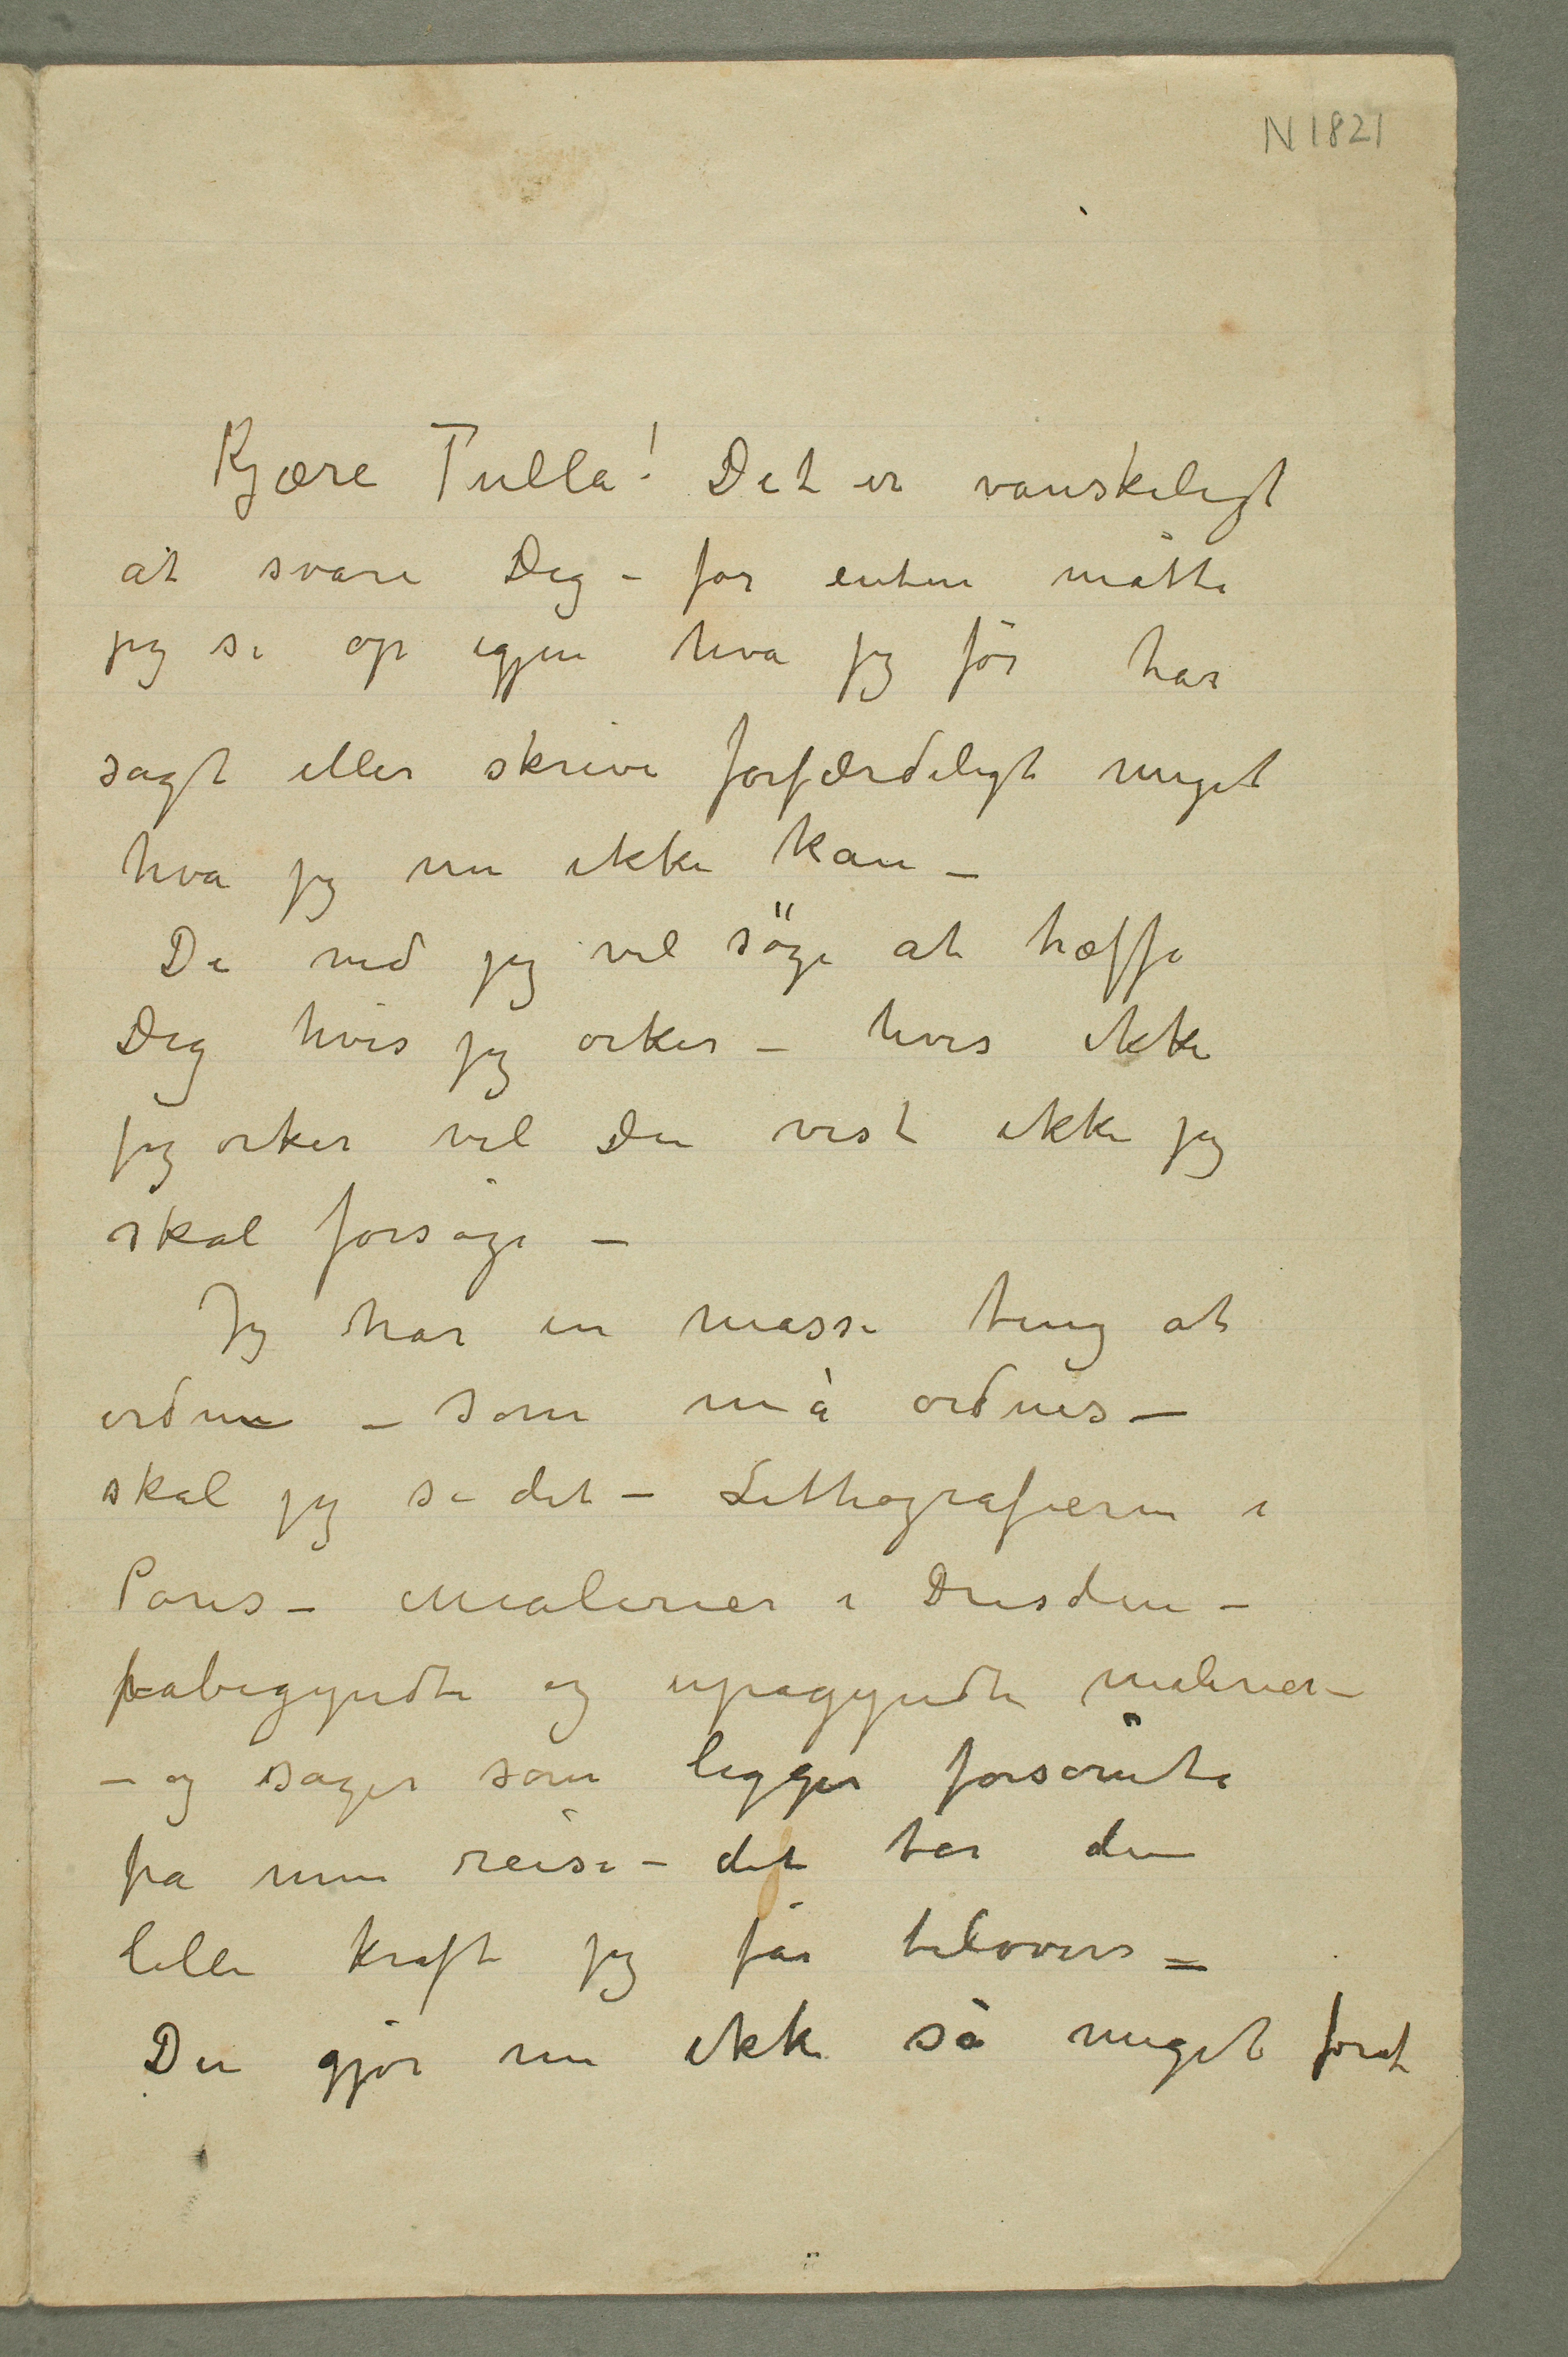 N 1821
Kjære Tulla! Det er vanskeligt
at svare Dig – for enten måtte
jeg si op igjen hva jeg før har
sagt eller skrive forfærdeligt meget
hva jeg nu ikke kan –
Du ved jeg vil söge at træffe
Dig hvis jeg orker – hvis ikke
jeg orker vil Du vist ikke jeg
skal forsøge –
Jeg har en masse ting at
ordne – som må ordnes –
skal jeg se det – Lithografierne i
Paris – Malerier i Dresden –
påbegyndte og upågyndte malerier –
– og sager som ligger forsømte
fra min reise – det tar den
lille kraft jeg får tilovers –
Du gjør nu ikke så meget forat